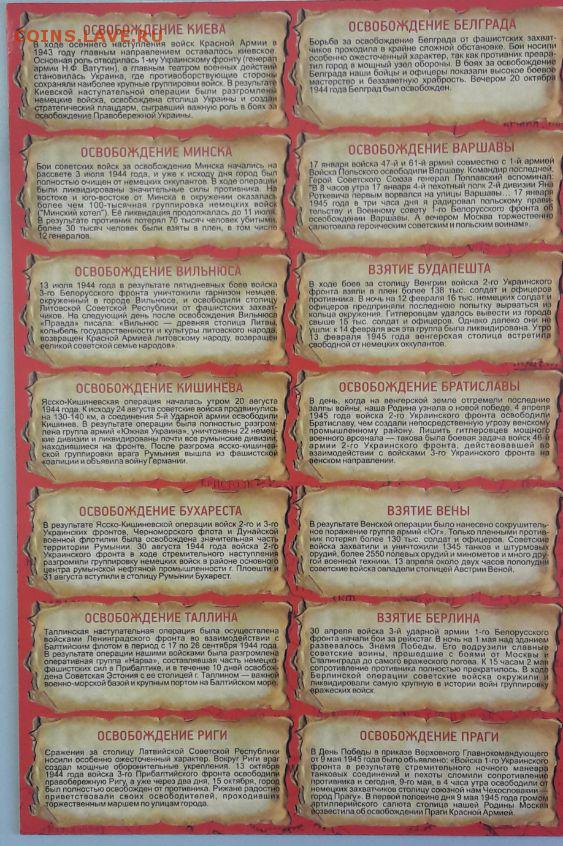 COINS.LAVE.RU
ОСВОБОЖДЕНИЕ КИЕВА
В ходе осеннего наступления войск Красной Армии в
1943 году главным направлением оставалось киевское.
Основная роль отводилась 1-му Украинскому фронту (генерал
армии Н.Ф. Ватутин), а главным театром военных действий
становилась Украина, где противоборствующие стороны
сохраняли наиболее крупные группировки войск. В результате
Киевской наступательной операции были разгромлены
немецкие войска, освобождена столица Украины и создан
стратегический плацдарм, сыгравший важную роль в боях за
освобождение Правобережной Украины.
ОСВОБОЖДЕНИЕ МИНСКА
Бои советских войск за освобождение Минска начались на
рассвете 3 июля 1944 года, и уже к исходу дня город был
полностью очищен от немецких оккупантов. В ходе операции
были ликвидированы значительные силы противника. На
востоке и юго-востоке от Минска в окружении оказалась
более чем 100-тысячная группировка немецких войск
("Минский котел"). Её ликвидация продолжалась до 11 июля.
В результате противник потерял 70 тысяч человек убитыми,
более 30 тысяч человек были взяты в плен, в том числе
12 генералов.
ОСВОБОЖДЕНИЕ ВИЛЬНЮСА
13 июля 1944 года в результате пятидневных боев войска
3-го Белорусского фронта уничтожили гарнизон немцев,
окруженный в городе Вильнюсе, и освободили столицу
Литовской Советской Республики от фашистских захват-
чиков. На следующий день после освобождения Вильнюса
«Правда» писала: «Вильнюс – древняя столица Литвы,
колыбель государственности и культуры литовского народа,
возвращен Красной Армией литовскому народу, возвращен
великой советской семье народов»
ОСВОБОЖДЕНИЕ КИШИНЕВА
Ясско-Кишиневская операция началась утром 20 августа
1944 года. К исходу 24 августа советские войска продвинулись
на 130-140 км, а соединения 5-й Ударной армии освободили
Кишинев. В результате операции была полностью разгром-
лена группа армий «Южная Украина», уничтожены 22 немец-
кие дивизии и ликвидированы почти все румынские дивизии,
находившиеся на фронте. После разгрома ясско-кишинев-
ской группировки врага Румыния вышла из фашистской
коалиции и объявила войну Германии.
ОСВОБОЖДЕНИЕ БУХАРЕСТА
В результате Ясско-Кишиневской операции войск 2-го и 3-го
Украинских фронтов, Черноморского флота и Дунайской
военной флотилии была освобождена значительная часть
территории Румынии. 30 августа 1944 года войска 2-го
Украинского фронта в ходе стремительного наступления
разгромили группировку немецких войск в районе основного
центра румынской нефтяной промышленности г. Плоешти и
31 августа вступили в столицу Румынии Бухарест.
ОСВОБОЖДЕНИЕ ТАЛЛИНА
Таллинская наступательная операция была осуществлена
войсками Ленинградского фронта во взаимодействии с
Балтийским флотом в период с 17 по 26 сентября 1944 года.
В результате операции нашими войсками была разгромлена
оперативная группа «Нарва», составлявшая часть немецко-
фашистских сил в Прибалтике, и в течение 10 дней освобож-
дена Советская Эстония с ее столицей г. Таллином — важной
военно-морской базой и крупным портом на Балтийском море.
ОСВОБОЖДЕНИЕ РИГИ
Сражения за столицу Латвийской Советской Республики
носили особо ожесточенный характер. Вокруг Риги враг
создал мощные оборонительные укрепления. 13 октября
1944 года войска 3-го Прибалтийского фронта освободили
правобережную Ригу, а уже через два дня, 15 октября, город
был полностью освобожден от противника. Рижане радостно
приветствовали своих освободителей, проходивших
торжественным маршем по улицам города.
ОСВОБОЖДЕНИЕ БЕЛГРАДА
Борьба за освобождение Белграда от фашистских захват-
чиков проходила в крайне сложной обстановке. Бои носили
особенно ожесточенный характер, так как противник превра-
тил город в мощный узел обороны. В боях за освобождение
Белграда наши бойцы и офицеры показали высокое боевое
мастерство и беззаветную храбрость. Вечером 20 октября
1944 года Белград был освобожден.
ОСВОБОЖДЕНИЕ ВАРШАВЫ
17 января войска 47-й и 61-й армий совместно с 1-й армией
Войска Польского освободили Варшаву. Командир последней,
Герой Советского Союза генерал Поплавский вспоминал:
"В 8 часов утра 17 января 4-й пехотный полк 2-й дивизии Яна
Роткевича первым ворвался на улицы Варшавы... 17 января
1945 года в три часа дня я радировал польскому прави-
тельству и Военному совету 1-го Белорусского фронта об
освобождении Варшавы. А вечером Москва торжественно
салютовала героическим советским и польским воинам».
ВЗЯТИЕ БУДАПЕШТА
В ходе боев за столицу Венгрии войска 2-го Украинского
фронта взяли в плен более 138 тыс. солдат и офицеров
противника. В ночь на 12 февраля 16 тыс. немецких солдат и
офицеров предприняли последнюю попытку вырваться из
кольца окружения. Гитлеровцам удалось вывести из города
свыше 15 тыс. солдат и офицеров. Однако далеко они не
ушли: к 14 февраля вся эта группа была ликвидирована. Утро
13 февраля 1945 года венгерская столица встретила
свободной от немецких оккупантов.
ОСВОБОЖДЕНИЕ БРАТИСЛАВЫ
В день, когда на венгерской земле отгремели последние
залпы войны, наша Родина узнала о новой победе. 4 апреля
1945 года войска 2-го Украинского фронта освободили
Братиславу, чем создали непосредственную угрозу венскому
промышленному району. Лишить гитлеровцев мощного
военного арсенала — такова была боевая задача войск 46-й
армии 2-го Украинского фронта, действовавшей во
взаимодействии с войсками 3-го Украинского фронта на
венском направлении.
ВЗЯТИЕ ВЕНЫ
В результате Венской операции было нанесено сокрушитель-
ное поражение группе армий «Юг». Только пленными против-
ник потерял более 130 тыс. солдат и офицеров. Советские
войска захватили и уничтожили 1345 танков и штурмовых
орудий, более 2550 полевых орудий и минометов и много дру-
гой военной техники. 13 апреля около двух часов пополудни
советские войска овладели столицей Австрии Веной.
ВЗЯТИЕ БЕРЛИНА
30 апреля войска 3-й ударной армии 1-го Белорусского
фронта начали бои за рейхстаг. В ночь на 1 мая над зданием
развевалось Знамя Победы. Его водрузили славные
советские воины, прошедшие с боями от Москвы и
Сталинграда до самого вражеского логова. К 15 часам 2 мая
сопротивление противника полностью прекратилось. В ходе
Берлинской операции советские войска окружили и
ликвидировали самую крупную в истории войн группировку
вражеских войск.
ОСВОБОЖДЕНИЕ ПРАГИ
В День Победы в приказе Верховного Главнокомандующего
от 9 мая 1945 года было объявлено: «Войска 1-го Украинского
фронта в результате стремительного ночного маневра
танковых соединений и пехоты сломили сопротивление
противника и сегодня, 9-го мая, в 4 часа утра освободили от
немецких захватчиков столицу союзной нам Чехословакии -
город Прагу». В первой половине дня 9 мая 1945 года громом
артиллерийского салюта столица нашей Родины Москва
возвестила об освобождении Праги Красной Армией.